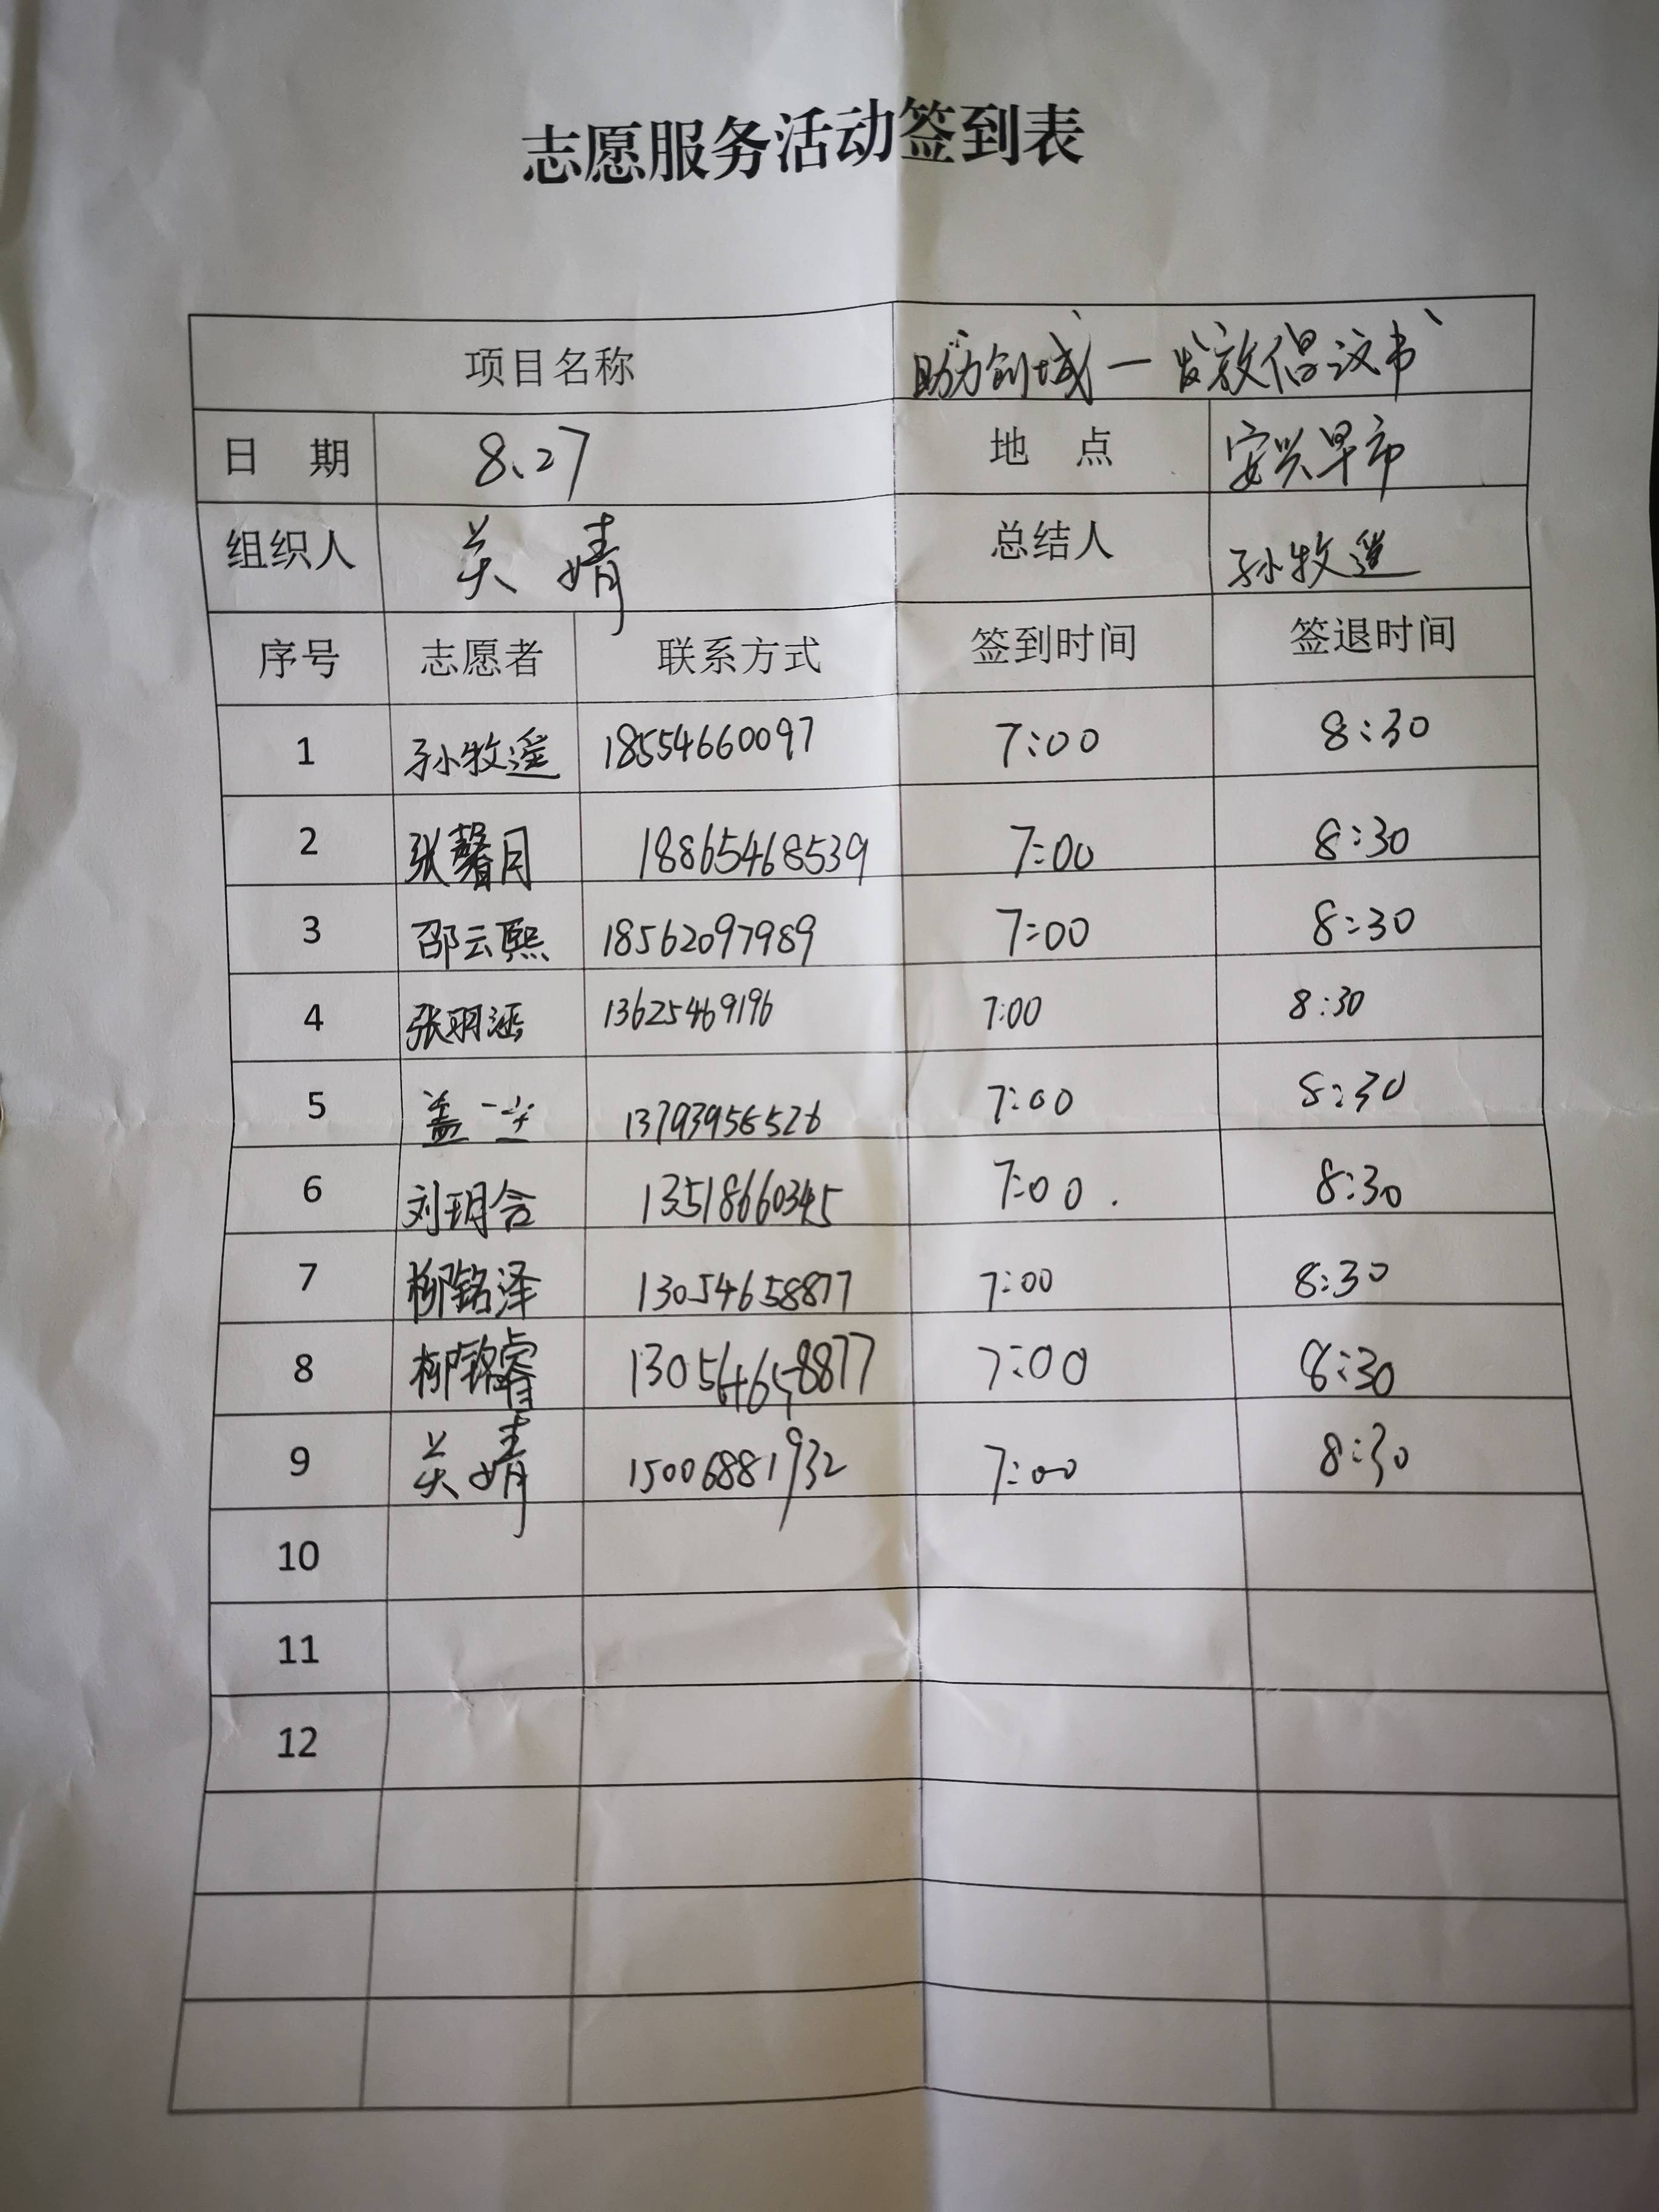 志愿服务活动签到表
项目名称 助力创城一发放倡议书
日 期 8、27 地 点 安兴早市
组织人 关婧 总结人 孙牧遥
序号 志愿者 联系方式 签到时间 签退时间
1 孙牧遥 18554660097 7:00 8:30
2 张馨月 18865468539 7:00 8:30
3 邵云熙 18562097989 7:00 8:30
4 张玥涵 13625469196 7:00 8:30
5 盖一 13793956526 7:00 8:30
6 刘玥含 13518660345 7:00 8:30
7 柳铭泽 13054658877 7:00 8:30
8 柳铭睿 13054658877 7:00 8:30
9 关婧 15006881932 7:00 8:30
10
11
12